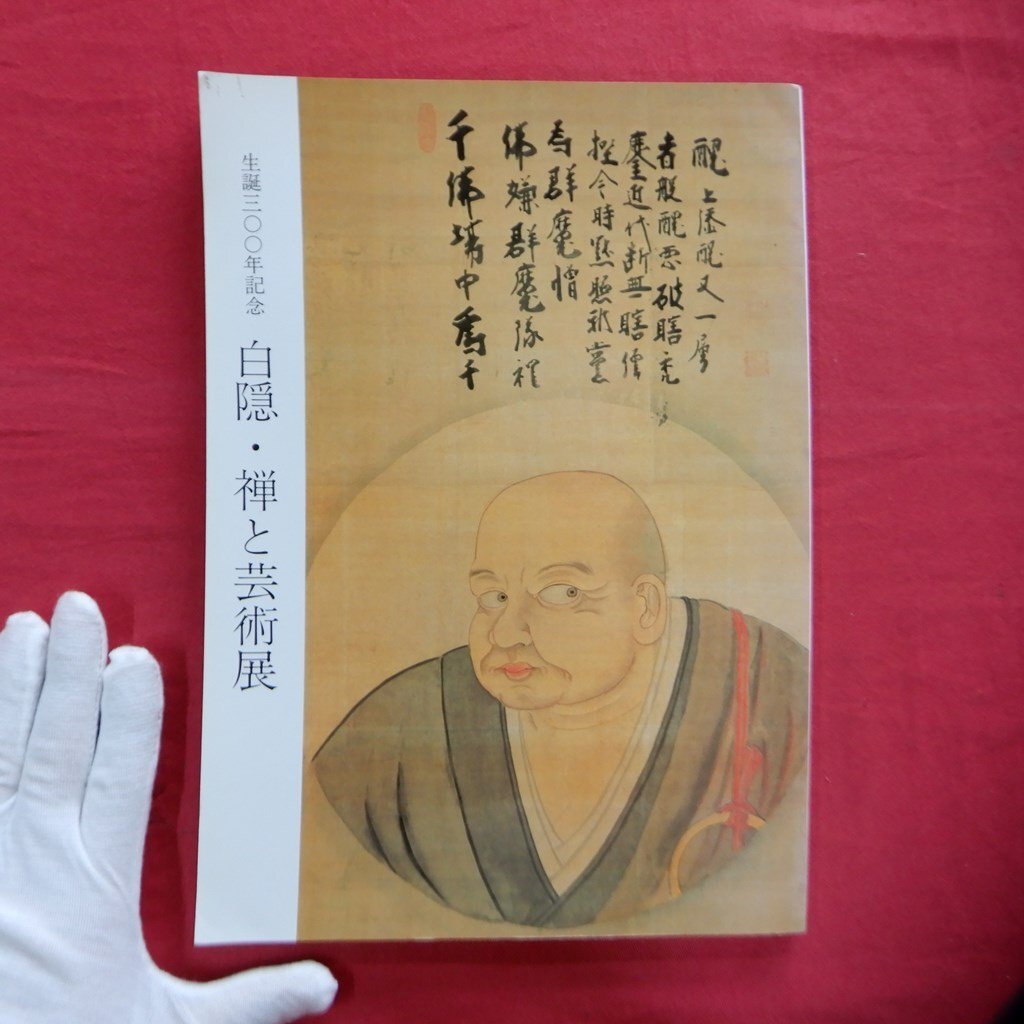 生誕三〇〇年記念 白隠・禅と芸術展
千佛場中為千
佛嫌群魔隊裡
為群魔憎
挫今時黙照邪黨
鏖近代断無瞎僧
者般醜悪破瞎禿
醜上添醜又一層